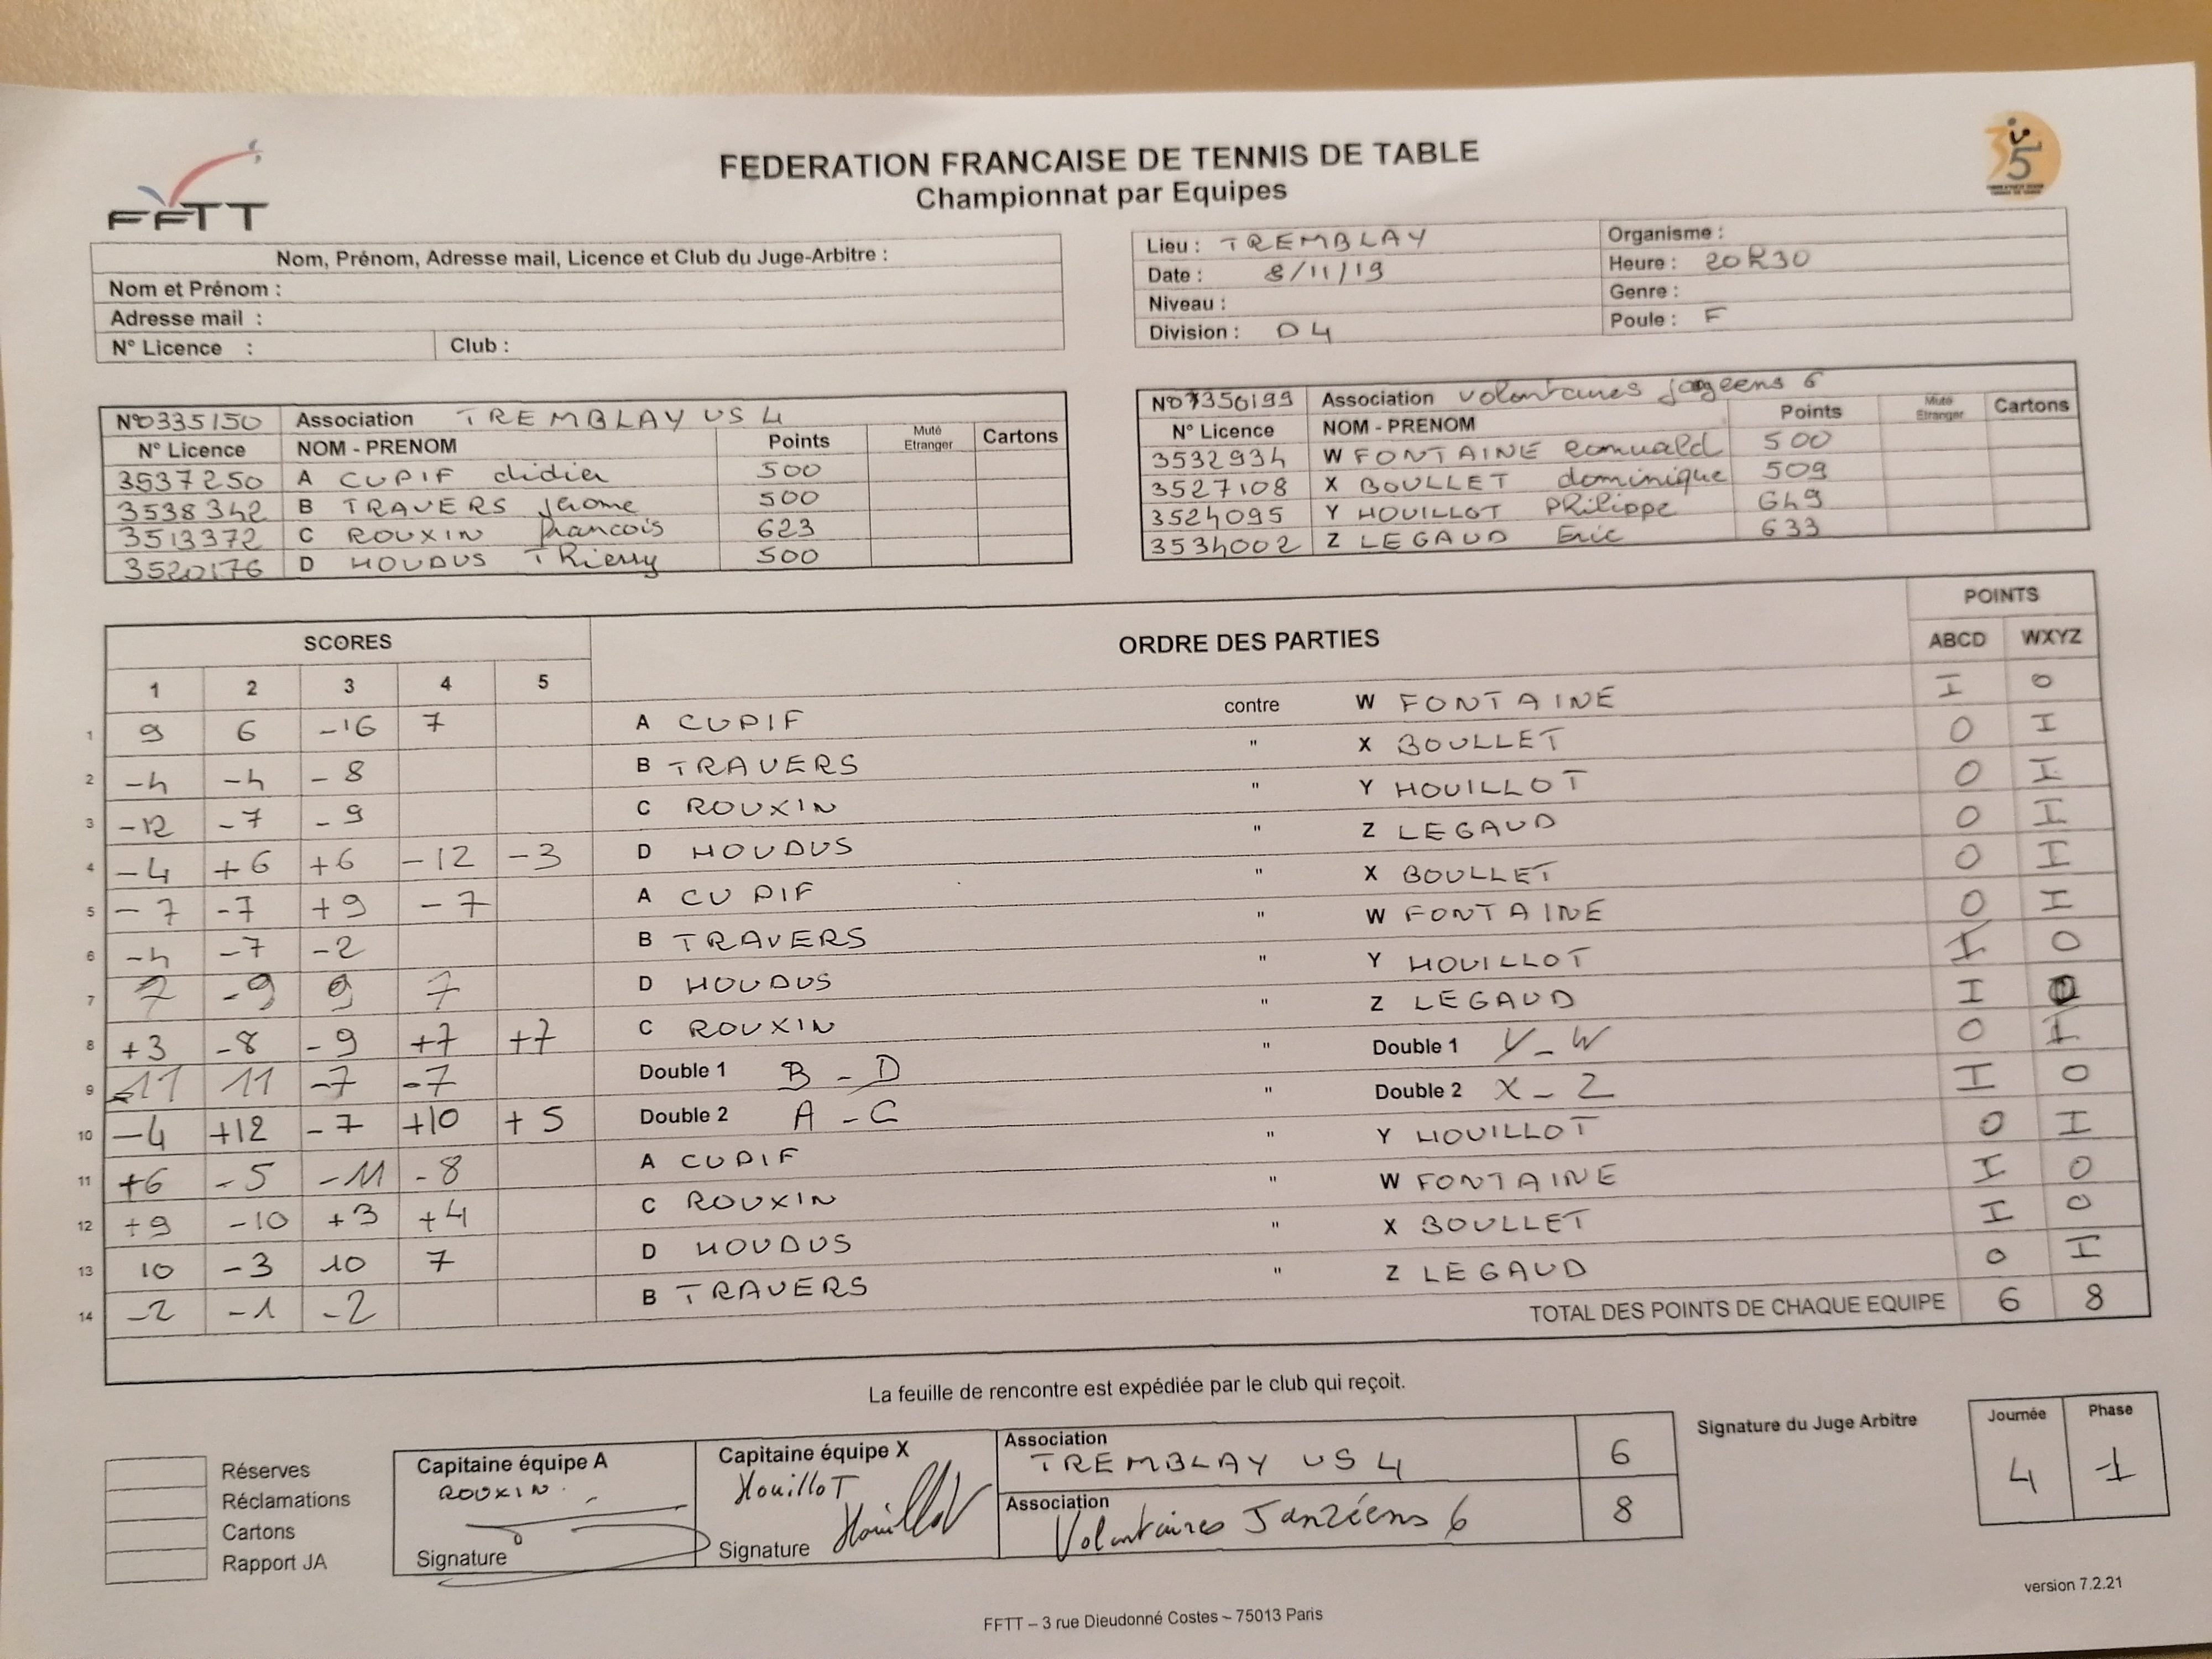 FFTT
FEDERATION FRANCAISE DE TENNIS DE TABLE
Championnat par Equipes
35
Nom, Prénom, Adresse mail, Licence et Club du Juge-Arbitre :
Nom et Prénom :
Adresse mail :
N° Licence : Club :
Lieu : TREMBLAY Organisme :
Date : 8/11/19 Heure : 20h30
Niveau : Genre :
Division : D4 Poule : F
N°0335150 Association TREMBLAY US 4
N° Licence NOM - PRENOM Points Muté Etranger Cartons
3537250 A CUPIF didier 500
3538342 B TRAVERS jerome 500
3513372 C ROUXIN francois 623
3520176 D HOUDUS Thierry 500
N°07350199 Association volontaires 6
N° Licence NOM - PRENOM Points Muté Etranger Cartons
3532934 W FONTAINE Romuald 500
3527108 X BOULLET dominique 509
3524095 Y HOUILLOT Philippe 649
3534002 Z LEGAUD Eric 633
SCORES ORDRE DES PARTIES POINTS
1 2 3 4 5 ABCD WXYZ
1 9 6 -16 7 A CUPIF contre W FONTAINE I 0
2 -4 -4 -8 B TRAVERS " X BOULLET 0 I
3 -12 -7 -9 C ROUXIN " Y HOUILLOT 0 I
4 -4 +6 +6 -12 -3 D HOUDUS " Z LEGAUD 0 I
5 -7 -7 +9 -7 A CUPIF " X BOULLET 0 I
6 -4 -7 -2 B TRAVERS " W FONTAINE 0 I
7 7 -9 9 7 D HOUDUS " Y HOUILLOT I 0
8 +3 -8 -9 +7 +7 C ROUXIN " Z LEGAUD I 0
9 -11 11 -7 -7 Double 1 B - D " Double 1 Y - W 0 I
10 -4 +12 -7 +10 +5 Double 2 A - C " Double 2 X - Z I 0
11 +6 -5 -11 -8 A CUPIF " Y HOUILLOT 0 I
12 +9 -10 +3 +4 C ROUXIN " W FONTAINE I 0
13 10 -3 10 7 D HOUDUS " X BOULLET I 0
14 -2 -1 -2 B TRAVERS " Z LEGAUD 0 I
TOTAL DES POINTS DE CHAQUE EQUIPE 6 8
La feuille de rencontre est expédiée par le club qui reçoit.
Réserves
Réclamations
Cartons
Rapport JA
Capitaine équipe A
ROUXIN
Signature
Capitaine équipe X
HouilloT
Signature Houillot
Association
TREMBLAY US 4 6
Association
Volontaires Janzéens 6 8
Signature du Juge Arbitre
Journée Phase
4 1
version 7.2.21
FFTT – 3 rue Dieudonné Costes – 75013 Paris